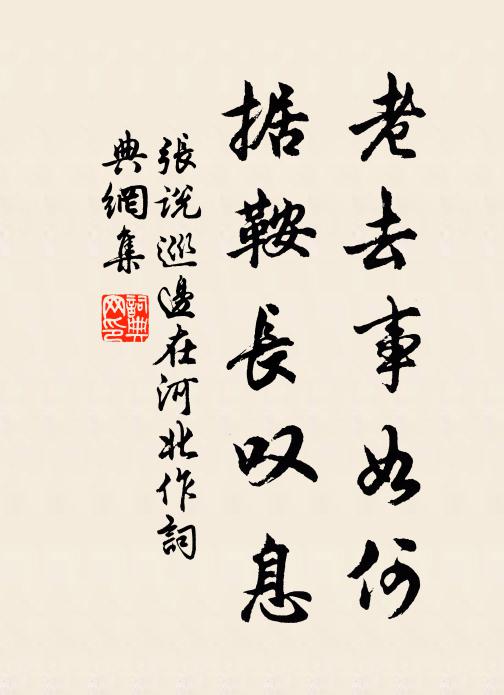 老去事如何
据鞍長叹息
張说巡邊在河北作詞
典網集
詞典网印